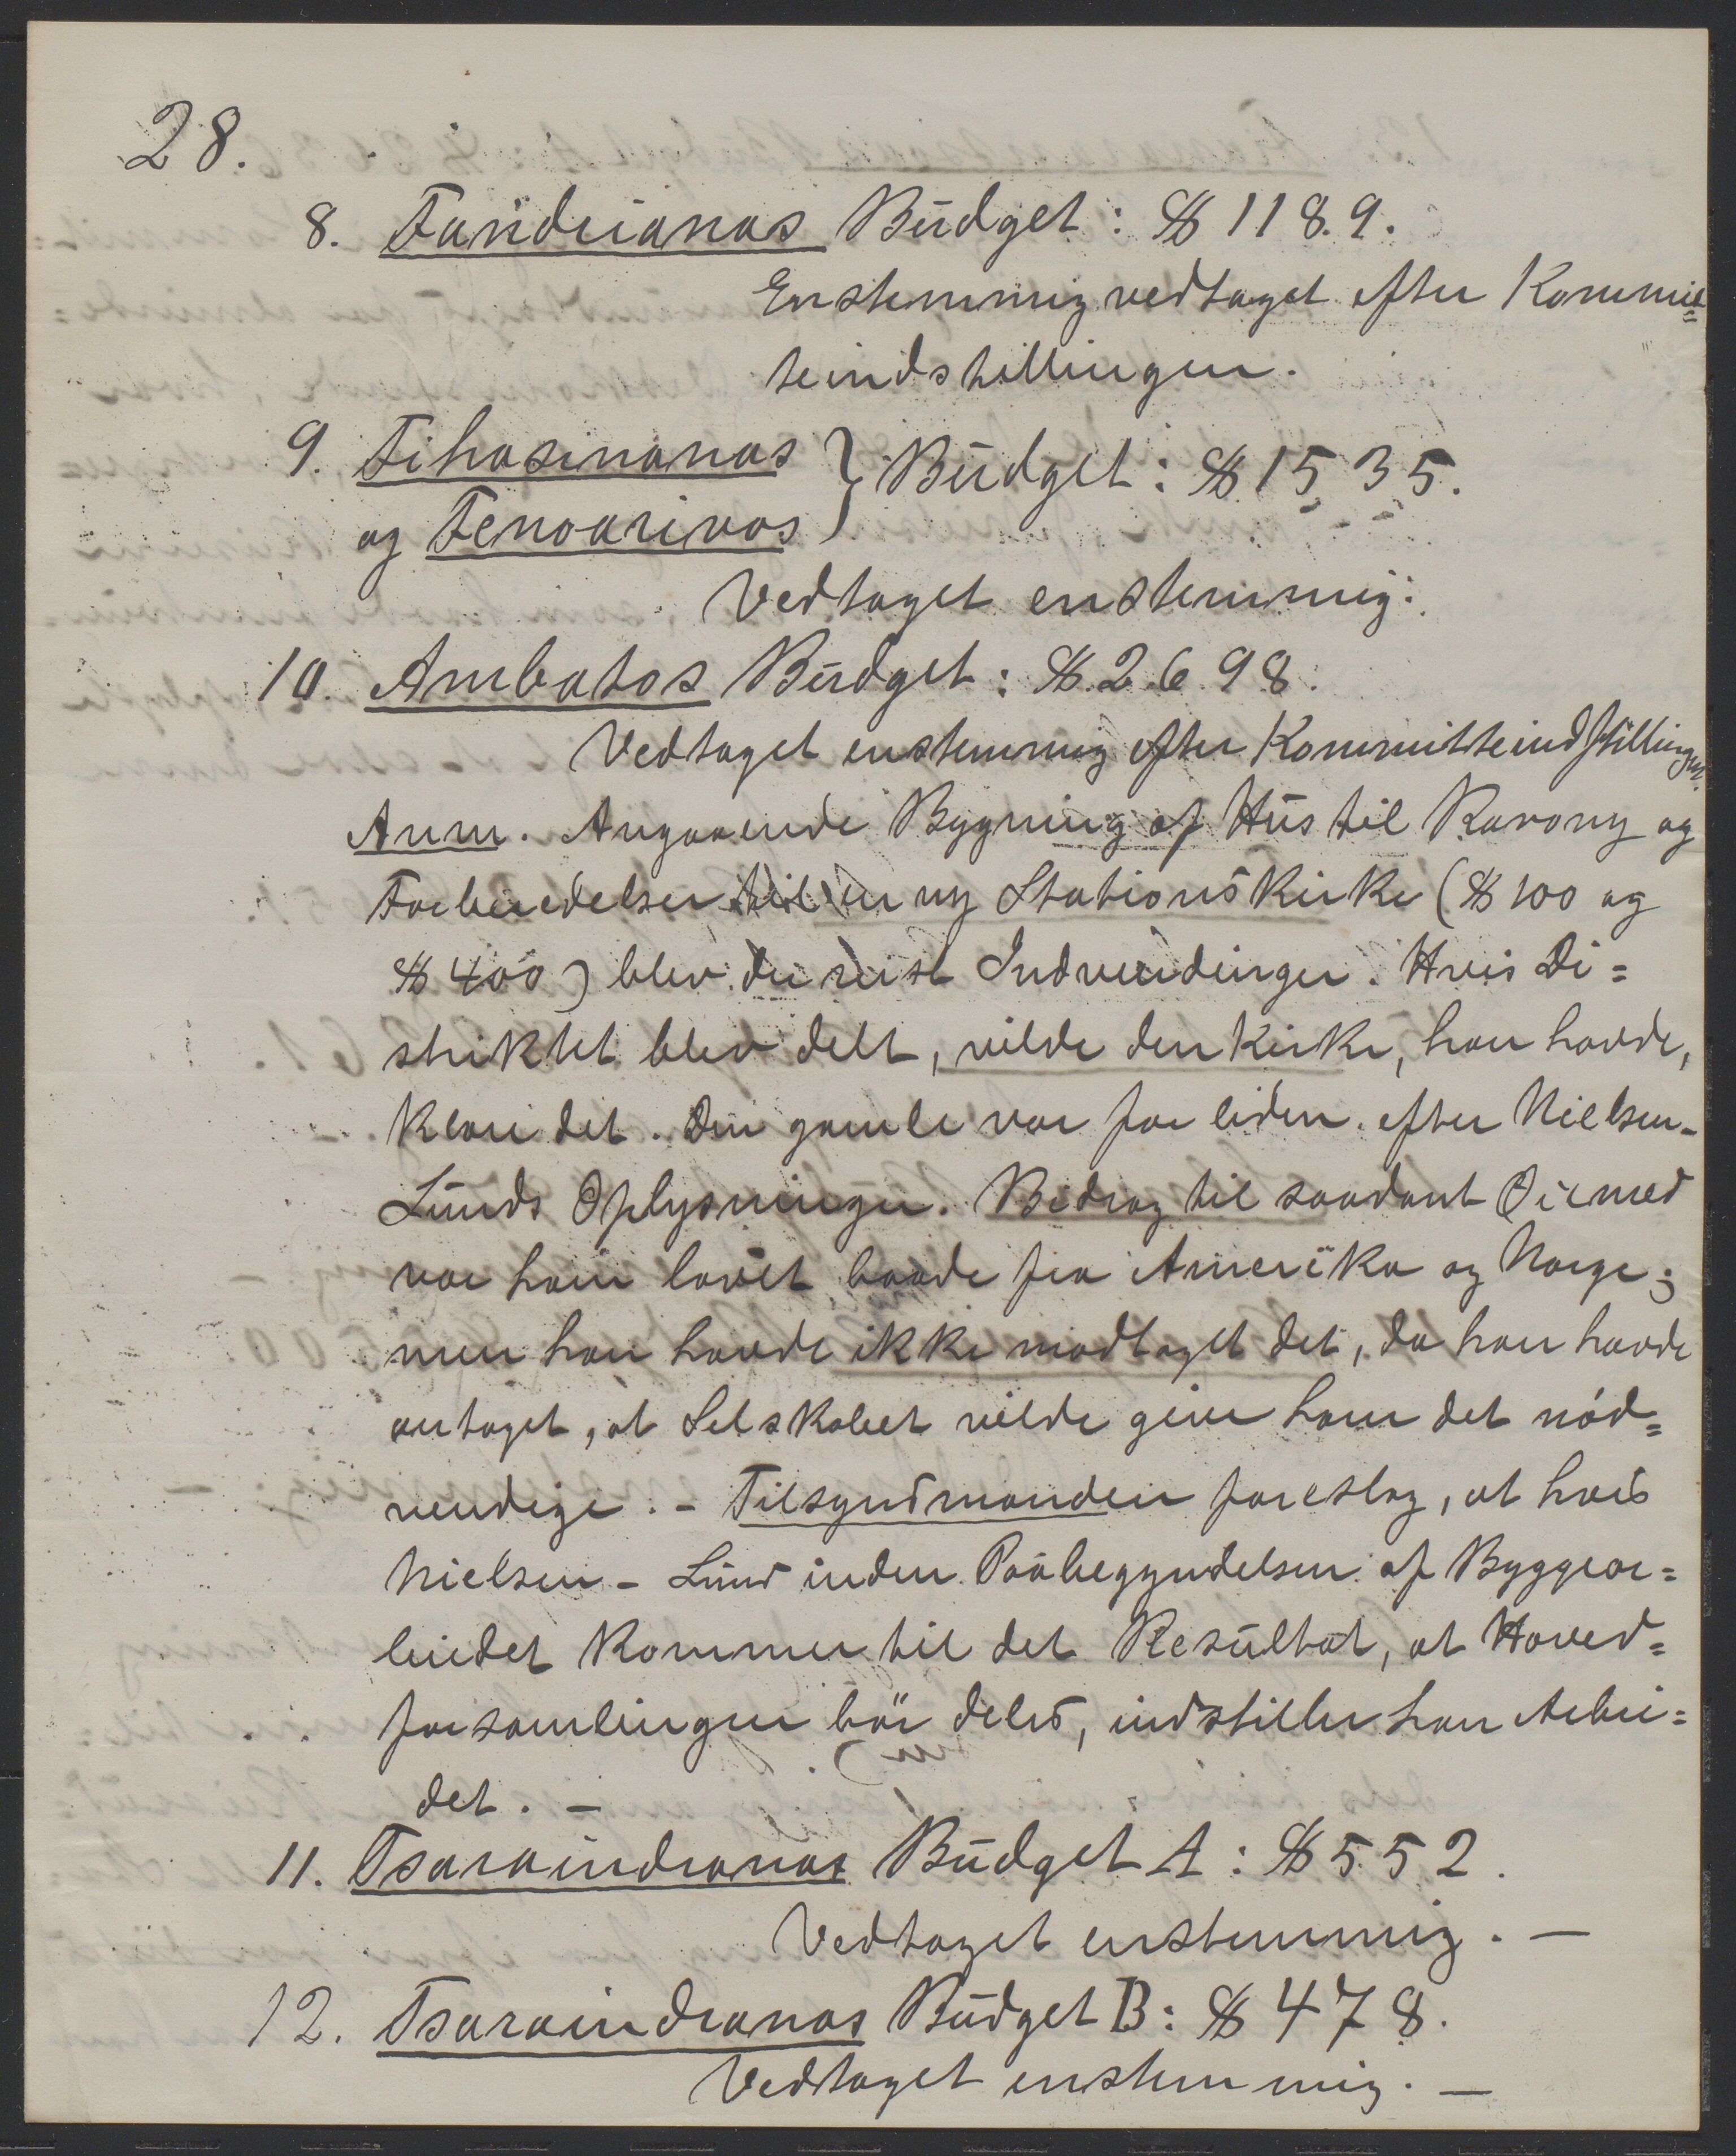 28.
8. Fandrianas Budget: $ 1189.
Enstemmig vedtaget efter Kommit=
teindstillingen.
9. Fihasinanas } Budget: $ 1535.
og Fenoarivos
Vedtaget enstemmig.
10. Ambatos Budget: $ 2698.
Vedtaget enstemmig efter Kommitteindstillingen.
Anm. Angaaende Bygning af Hus til Ravony og
Forberedelser til en ny Stationskirke ($ 100 og
$ 400) blev der reist Indvendinger. Hvis Di=
striktet blev delt, vilde den Kirke, han havde,
klare det. Den gamle var for liden efter Nielsen-
Lunds Oplysninger. Bidrag til saadant Øiemed
var ham lovet baade fra Amerika og Norge;
men han havde ikke modtaget det, da han havde
antaget, at Selskabet vilde give ham det nød=
vendige. – Tilsynsmanden foreslog, at hvis
Nielsen-Lund inden Paabegyndelsen af Byggear=
beidet kommer til det Resultat, at Hoved=
forsamlingen bør deles, indstiller han Arbei=
det. –
11. Tsaraindranas Budget A: $ 552.
Vedtaget enstemmig. –
12. Tsaraindranas Budget B: $ 478.
Vedtaget enstemmig. –